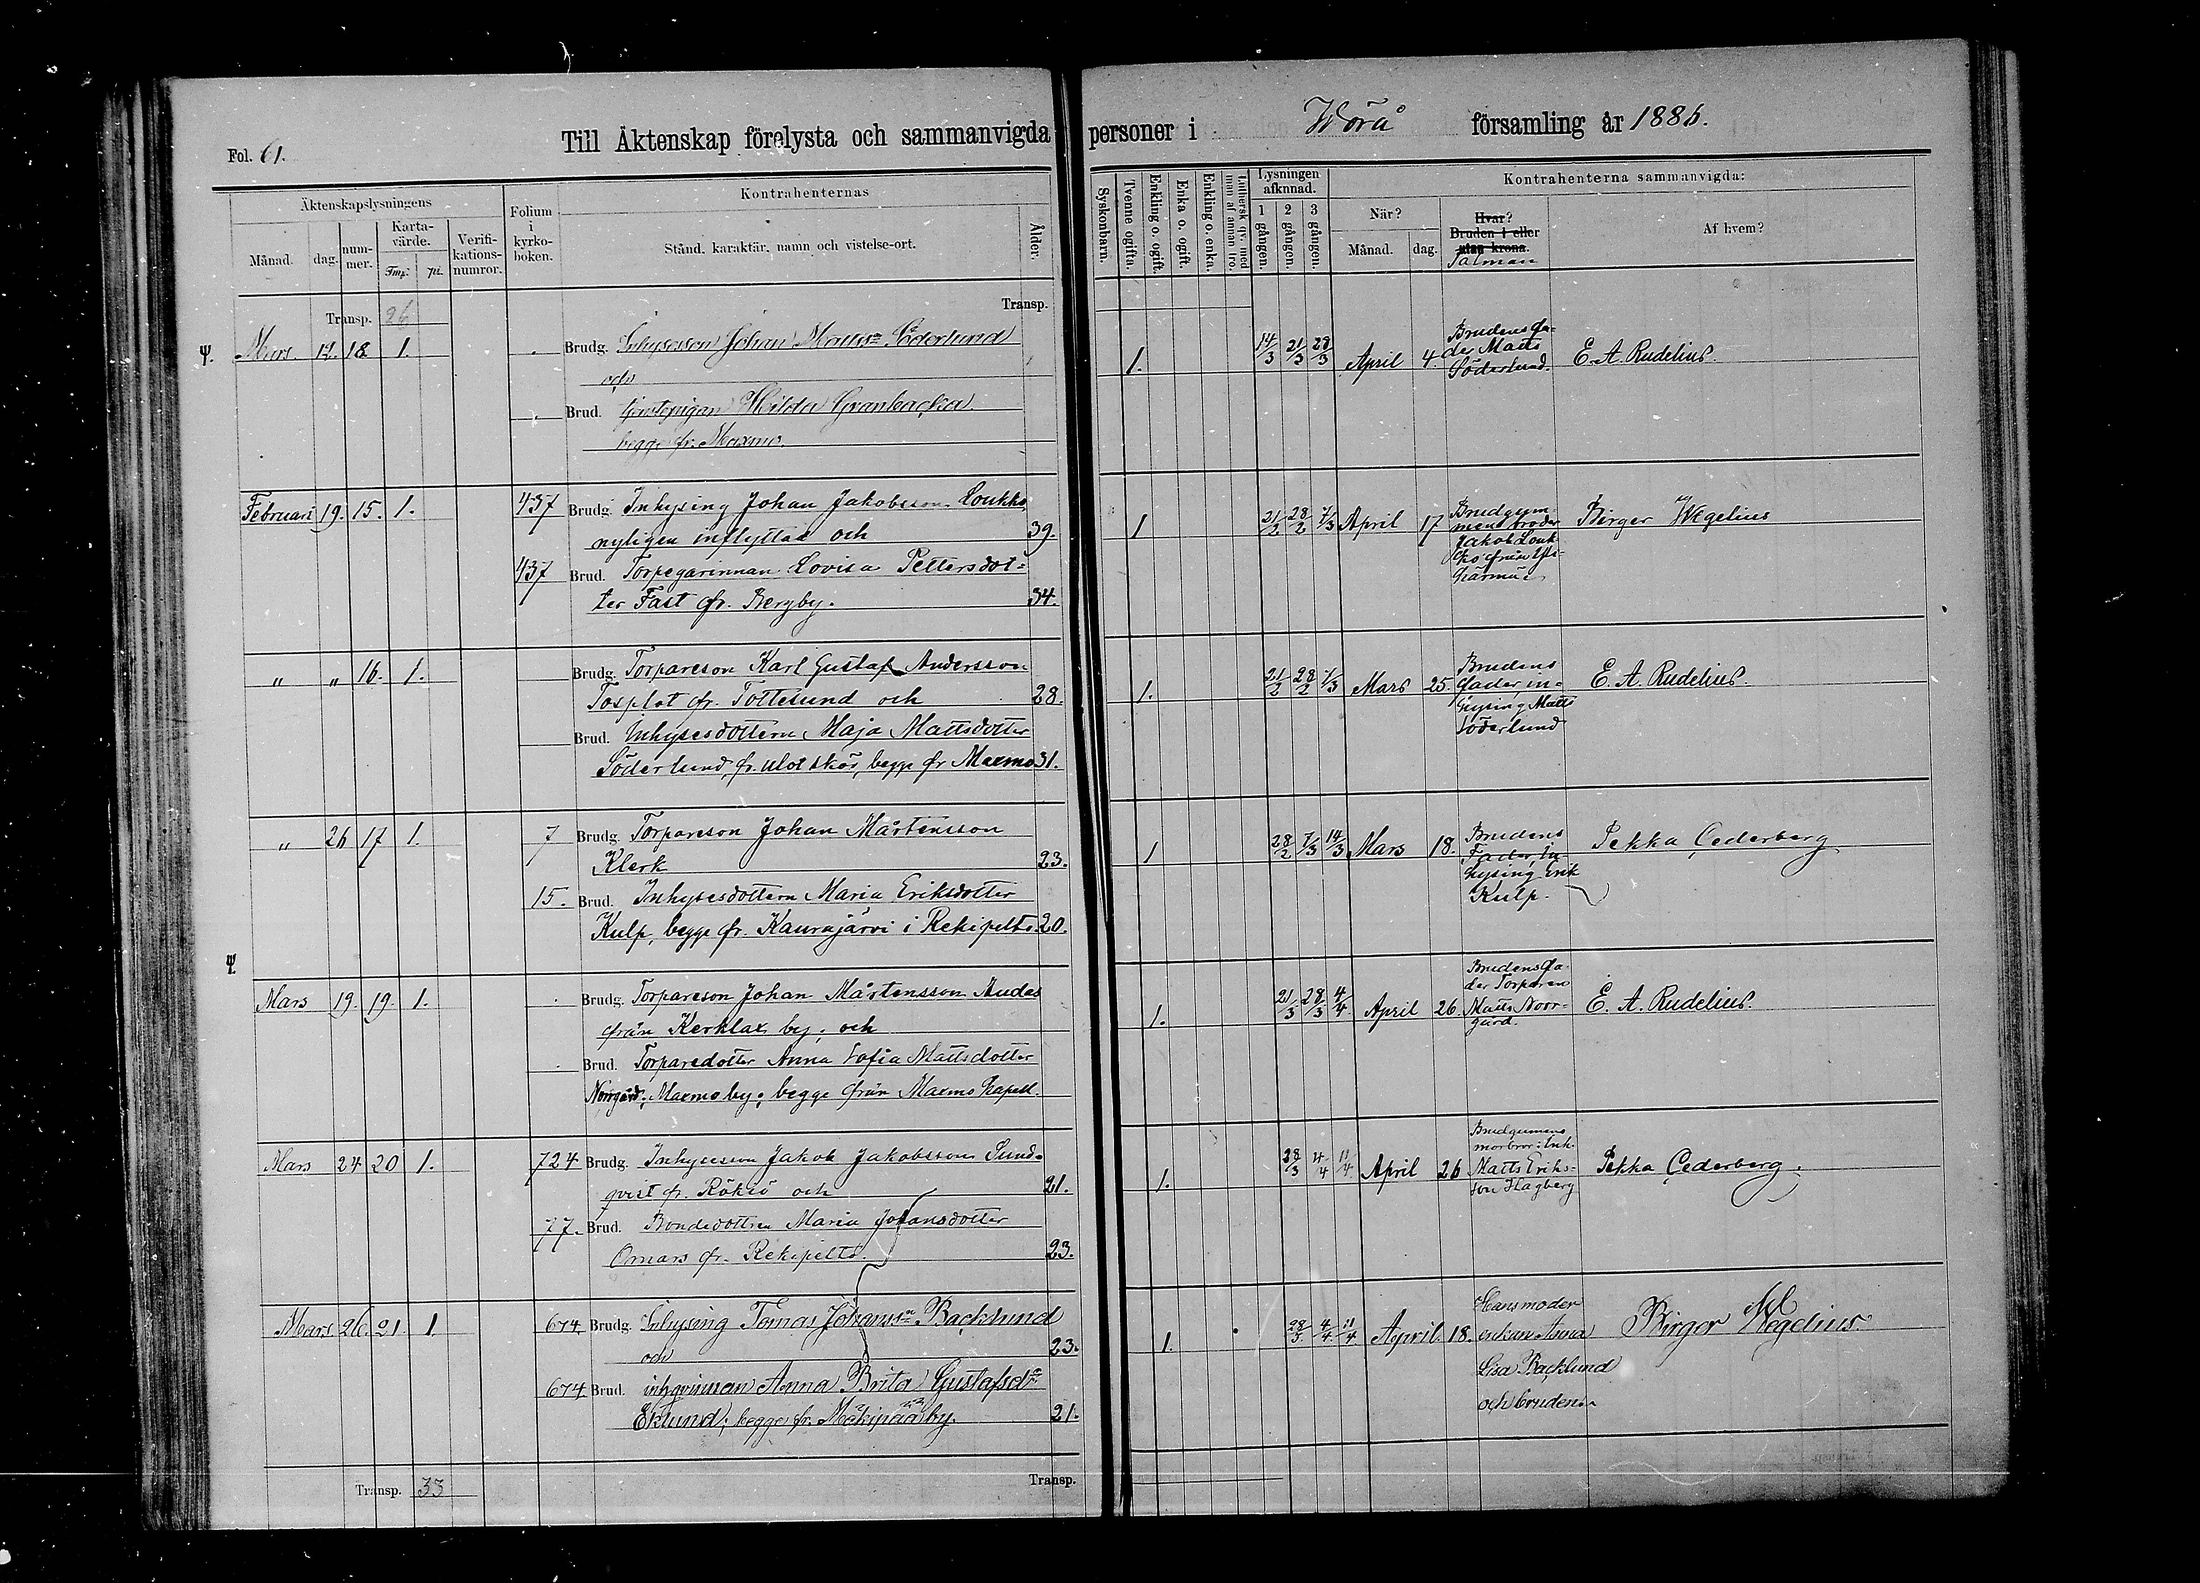 Fol. 61.
Till Äktenskap förelysta och sammanvigda personer i Wörå församling år 1886.
Äktenskapslysningens
Månad.
dag.
num-
mer.
Karta-
värde.
Fmk.
pi.
Verifi-
kations-
numror.
Folium
i
kyrko-
boken.
Kontrahenternas
Stånd, karaktär, namn och vistelse-ort.
Ålder.
Syskonbarn.
Tvenne ogifta.
Enkling o. ogift.
Enka o. ogift.
Enkling o. enka.
Luthersk qv. med
man af annan tro.
Lysningen
afknnad.
1 gången.
2 gången.
3 gången.
Kontrahenterna sammanvigda:
När?
Månad.
dag.
Hvar?
Bruden i eller
utan krona.
Talman
Af hvem?
Transp. 26
Transp.
Mars. 12. 18. 1. Brudg. Inhyseson Johan Mattss:n Söderlund
och
Brud. Gästepigan Hilda Granbacka
begge fr. Maxmo.
1. 14/3 21/3 28/3 April 4.
Brudens fa-
der Matts
Söderlund.
E. A. Rudelius.
Februari 19. 15. 1. 437 Brudg. Inhysing Johan Jakobsson Loukko
nyligen inflyttad och 39.
437 Brud. Torpegarinnan Lovisa Pettersdot-
ter Fast fr. Bergby. 34.
1 21/2 28/2 7/3 April 17
Brudgum-
mens broder
Jakob Louk-
ko från Yli-
härmä
Birger Wegelius
" " 16. 1. Brudg. Torpareson Karl Gustaf Andersson
Tosplot fr. Tottesund och 28.
Brud. Inhysesdottern Maja Mattsdotter
Söderlund, fr. begge fr Maxmo 31.
1. 21/2 28/2 7/3 Mars 25.
Brudens
fader, in-
hysing Matts
Söderlund
E. A. Rudelius.
" 26 17 1. 7 Brudg. Torpareson Johan Mårtensson
Klerk 23.
15. Brud. Inhysesdottern Maria Eriksdotter
Kulp, begge fr. Kaurajärvi i Rekipelto. 20.
1 28/2 7/3 14/3 Mars 18.
Brudens
Fader, In-
hysing Erik
Kulp.
Pekka Cederberg
Mars 19. 19. 1. Brudg. Torpareson Johan Mårtensson Andas
från Kerklax by, och
Brud. Torparedotter Anna Sofia Mattsdotter
Norrgård, Maxmo by; begge från Maxmo Kapell.
1. 21/3 28/3 4/4 April 26.
Brudens fa-
der Torparen
Matts Norr-
gård.
E. A. Rudelius.
Mars 24 20 1. 724 Brudg. Inhyseson Jakob Jakobsson Sund-
qvist fr. Röksiö och 21.
77. Brud. Bondedottren Maria Johansdotter
Omars fr. Rekipelto. 23.
1. 28/3 4/4 11/4 April 26
Brudgumens
morbror: Inh.
Matts Eriks-
son Hagberg
Pekka Cederberg.
Mars 26. 21. 1. 674 Brudg. Inhysing Tomas Johanss:n Backlund
och 23.
674 Brud. inhysinnan Anna Brita Gustafsd:r
Eklund; begge fr. Mäkipää by. 21.
1. 28/3 4/4 11/4 April 18.
Hans moder
enkan Anna
Lisa Backlund
och brudens
Birger Wegelius.
Transp. 33
Transp.